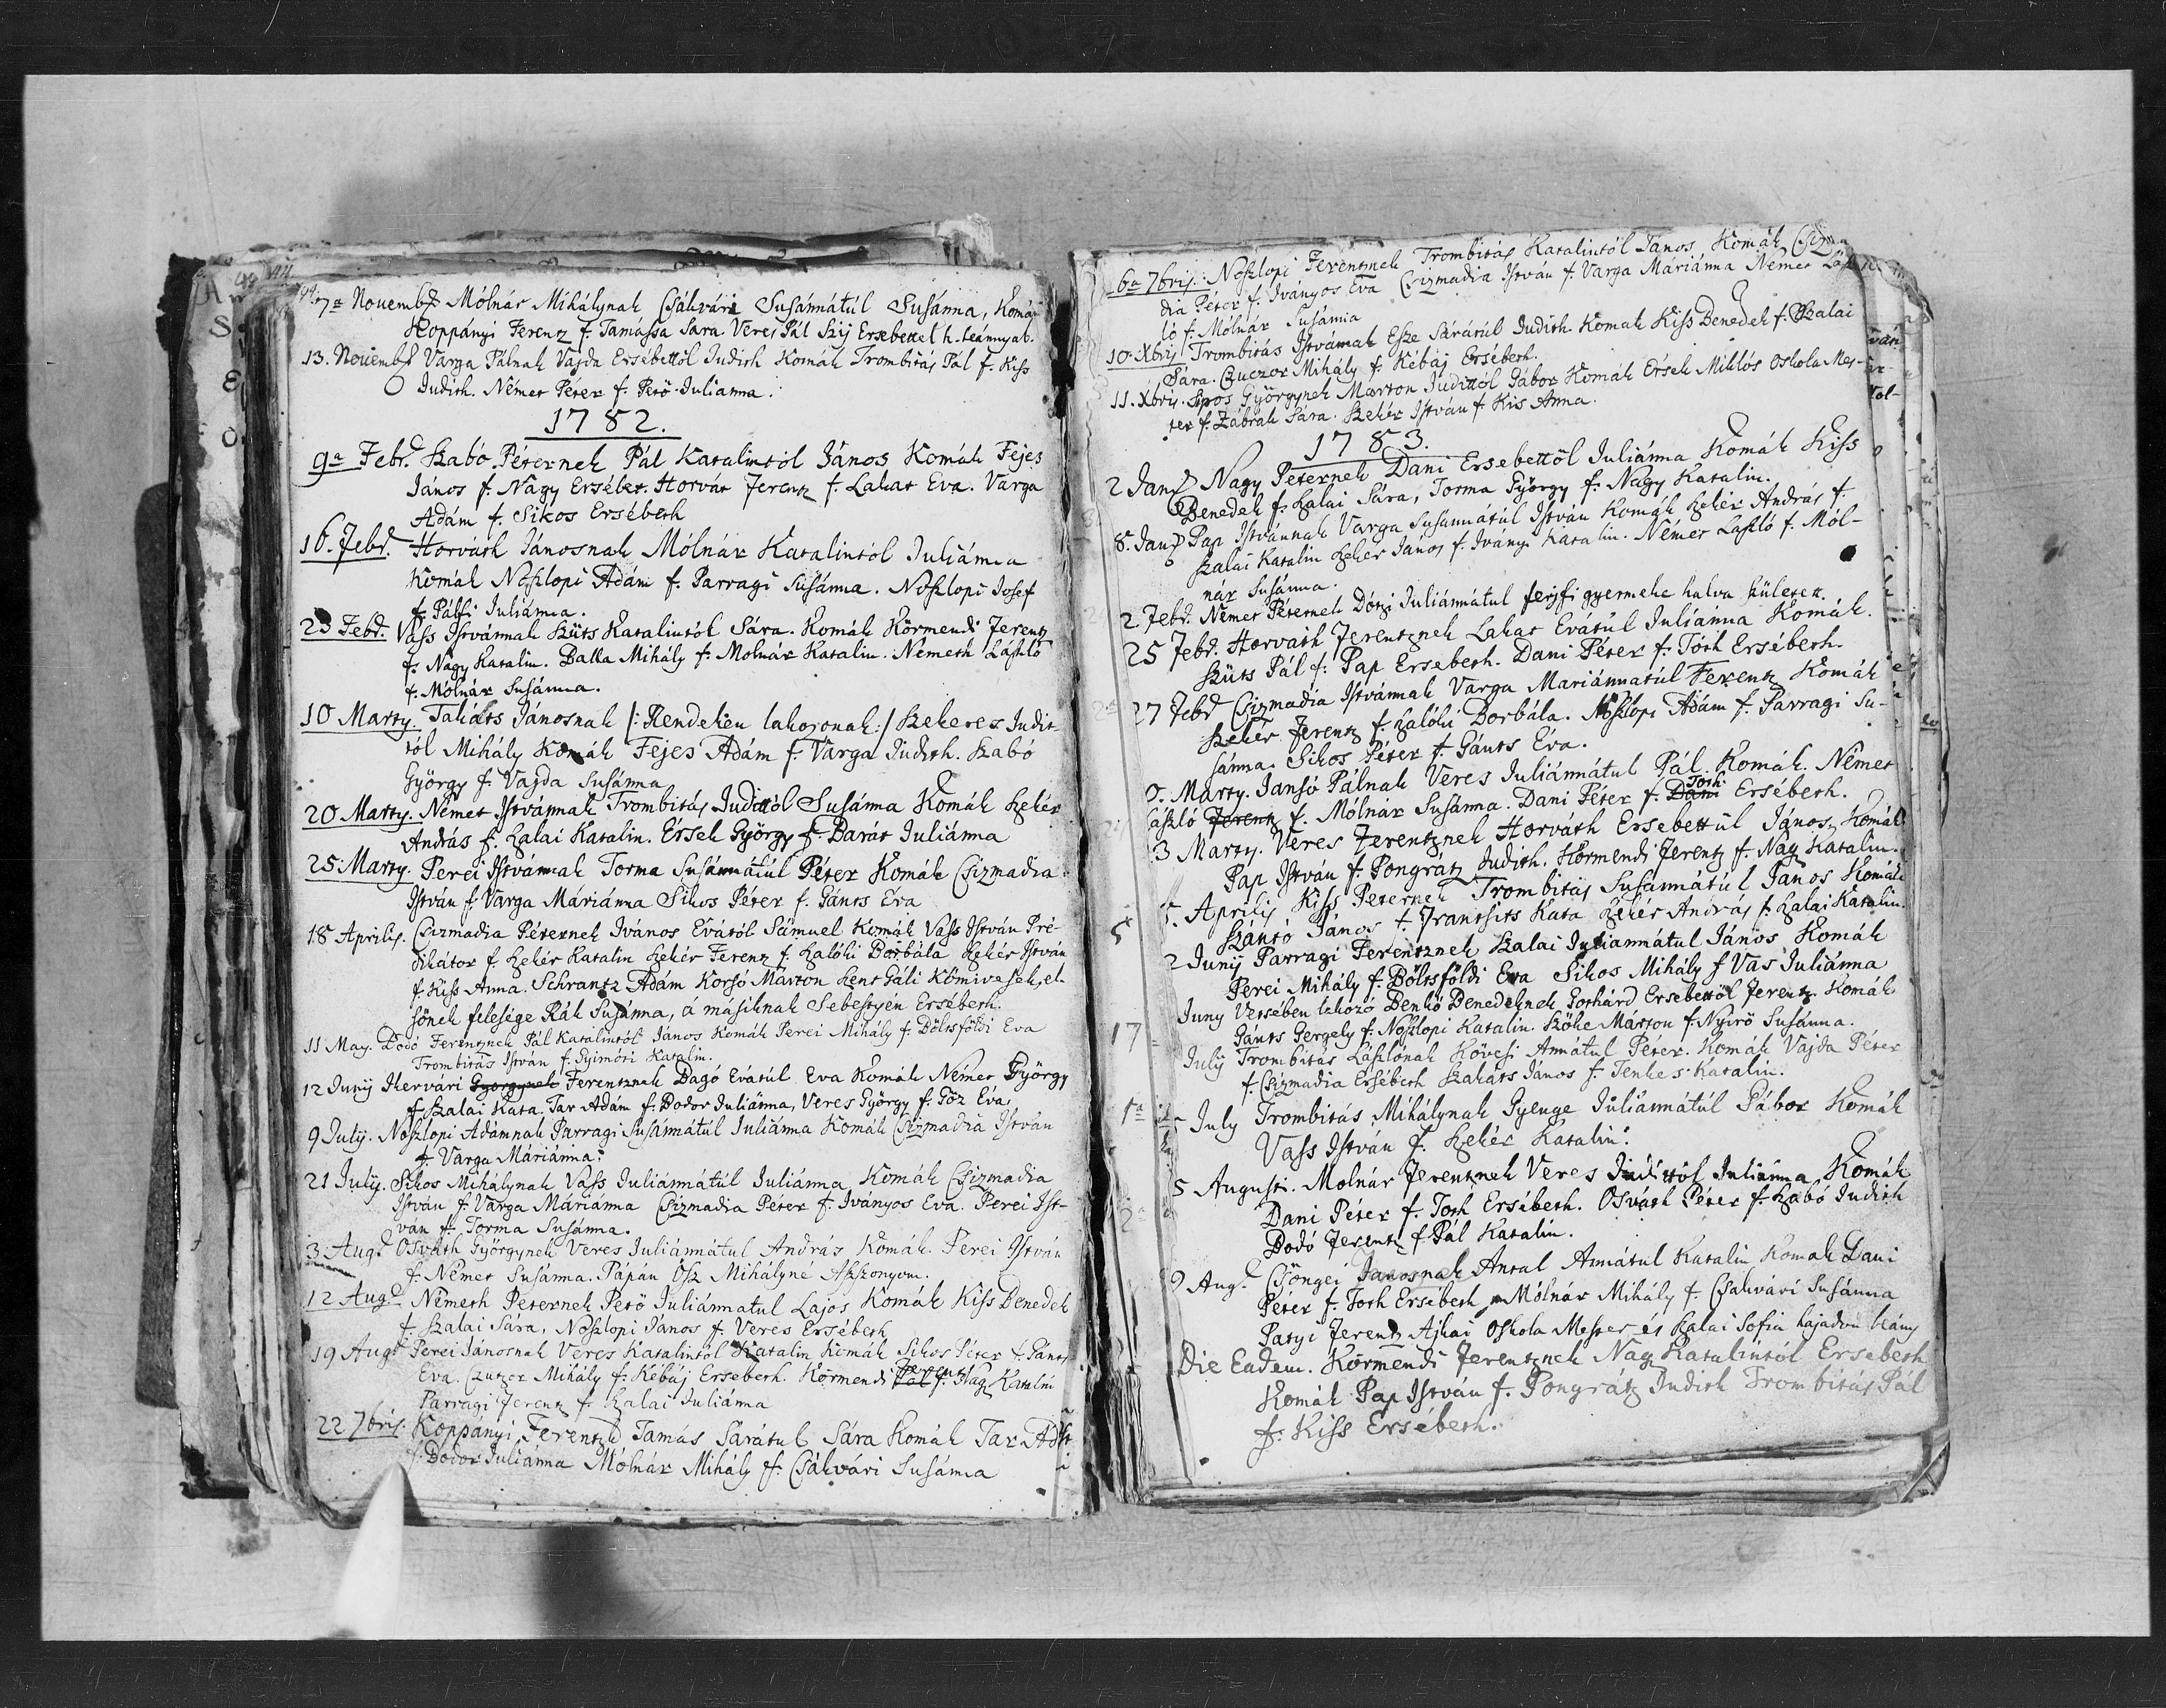 44.
7a Novembr Mólnár Mihálynak Csákvári Susánnátúl Susánna, Komák
Koppányi Ferentz f. Tamássa Sara. Veres Pál Szij Ersebettel h. leánnyal.
13. Novembr Varga Pálnak Vajda Ersébettöl Judith Komák Trombitás Pál f. Kiss
Judith. Német Péter f. Pető Julianna.
1782.
9a Febr. Szabó Péternek Pál Katalintól János Komák Fejes
János f. Nagy Ersébet. Horvát Ferentz f. Lakat Eva. Varga
Adám f. Sikos Ersébeth
16. Febr. Horváth Jánosnak Mólnár Katalintól Juliánna
Komák Noszlopi Adám f. Parragi Susánna. Noszlopi Josef
f. Pálfi Juliánna.
23 Febr. Vass Istvánnak Szüts Katalintól Sára. Komák Körmendi Ferentz
f. Nagy Katalin. Balla Mihály f. Molnár Katalin. Németh László
f. Mólnár Susánna.
10 Marty. Takáts Jánosnak /: Rendeken lakozonak :/ Szekeres Judit-
tól Mihály Komák Fejes Adám f. Varga Judith. Szabó
György f. Vajda Susánna
20 Marty. Német Istvánnak Trombitás Judittól Susánna Komák Fehér
András f. Zalai Katalin. Érsek György f. Barát Juliánna
25. Marty. Perei Istvánnak Torma Susánnátúl Péter Komák Csizmadia
István f. Varga Máriánna Sikos Péter f. Gánts Éva
18 Aprilis. Csizmadia Péternek Iványos Évától Sámuel Komák Vass István Pré-
dikátor f. Fehér Katalin Fehér Ferentz f. Zalóki Borbála Fehér István
f. Kiss Anna. Schrantz Adám Korsó Marton Szent Gáli Kömivesek, el-
sőnek felesége Rák Susánna, á másiknak Sebestyén Ersébeth.
11 May. Dodó Ferentznek Pál Katalintól János Komák Perei Mihály f. Böltsföldi Eva
Trombitás István f. Gyimóti Katalin.
12 Junij Ihervári Györgynek Ferentznek Dagó Évátúl Eva Komák Német György
f. Szalai Kata. Tar Adám f. Bodor Juliánna, Veres György f. Göz Éva.
9 Julij. Noszlopi Adámnak Parragi Susánnátúl Juliánna Komák Csizmadia István
f. Varga Máriánna.
21 Julij. Sikos Mihálynak Vass Juliánnátúl Juliánna Komák Csizmadia
István f. Varga Máriánna Csizmadia Péter f. Iványos Eva. Perei Ist-
ván f. Torma Susánna.
3. Aug. Osváth Györgynek Veres Juliánnátul András Komák. Perei István
f. Német Susánna. Pápán Ősz Mihályné Aszszonyom.
12 Aug. Németh Péternek Pető Juliánnatul Lajos Komák Kiss Benedek
f. Szalai Sára, Noszlopi János f. Veres Ersébeth
19 Aug. Perei Jánosnak Veres Katalintól Katalin Komák Sikos Péter f. Gánts
Eva. Czutzor Mihály f. Kébáj Ersébeth. Körmendi Pál Ferentz f. Nagy Katalin
Parragi Ferentz f. Zalai Juliánna
22 7bris. Koppányi Ferentz Tamás Sárátul Sára Komák Tar Adám
f. Bodor Juliánna Mólnár Mihály f. Csákvári Susánna
6a 7bris. Noszlopi Ferentznek Trombitás Katalintól János, Komák Csizma
dia Péter f. Iványos Eva Csizmadia István f. Varga Máriánna Német Lász
ló f. Mólnár Susánna
10. Xbris Trombitás Istvánnak Esze Sárátúl Judith. Komák Kiss Benedek f. Szalai
Sára. Czuczor Mihály f. Kébáj Ersébeth.
11. Xbris. Sipos Györgynek Marton Judittól Gábor Komák Érsek Miklós Oskola Mes-
ter f. Zábrák Sára. Fehér István f. Kis Anna.
1783.
2 Jan. Nagy Péternek Dani Ersebettöl Juliánna Komák Kiss
Benedek f. Zalai Sára, Torma György f. Nagy Katalin.
8. Jan. Pap Istvánnak Varga Susannátúl István Komák Fehér András f.
Szalai Katalin Fehér János f. Iványi Katalin. Német László f. Mól-
nár Susánna.
2. Febr. Német Péternek Dótzi Juliánnátul ferjfi gyermeke halva született.
25 Febr. Horváth Ferentznek Lakat Evátúl Juliánna Komák.
Szüts Pál f. Pap Ersebeth. Dani Péter f. Tóth Ersébeth.
27 Febr Csizmadia Istvánnak Varga Mariánnatúl Ferentz Komák
Fehér Ferentz f. Zalóki Borbála. Noszlopi Adám f. Parragi Su-
sánna. Sikos Péter f. Gánts Éva.
Marty. Jansó Pálnak Veres Juliánnátul Pál. Komák. Német
László Ferentz f. Mólnár Susánna. Dani Péter f. Dani Tóth Ersébeth.
3 Marty. Veres Ferentznek Horváth Ersebettül János, Komák
Pap István f. Pongrátz Judith. Körmendi Ferentz f. Nagy Katalin.
5. Aprilis Kiss Péternek Trombitás Susannátúl János Komák
Szántó János f. Frantsits Kata Fehér András f. Zalai Katalin.
2 Junij Parragi Ferentznek Szalai Juliannátul János Komák
Perei Mihály f. Böltsföldi Eva Sikos Mihály f Vas Juliánna
Juny Vetsében lakozó Benkö Benedeknek Gothárd Ersebettöl Ferentz. Komák
Gánts Gergely f. Noszlopi Katalin. Szöke Márton f. Nyirö Susánna.
Julij Trombitás Lászlónak Kövesi Annátul Péter. Komák Vajda Péter
f. Csizmadia Ersébeth Szakáts János f. Tenkes Katalin.
July Trombitás Mihálynak Gyenge Juliánnátúl Gábor Komák
Vass István f. Fehér Katalin.
5 Augusti. Molnár Ferentznek Veres Judittól Juliánna Komák
Dani Péter f. Toth Ersébeth. Osváth Péter f. Szabó Judith
Dodó Ferentz f Pál Katalin.
9 Aug. Csöngei Jánosnak Antal Annátul Katalin Komák Dani
Péter f. Toth Ersébeth, Mólnár Mihály f. Csákvári Susánna
Patyi Ferentz Ajkai Oskola Mester és Zalai Sofia hajadon leány
Die Eadem. Körmendi Ferentznek Nagy Katalintól Ersebeth
Komák Pap István f. Pongrátz Judith Trombitás Pál
f. Kiss Ersébeth.